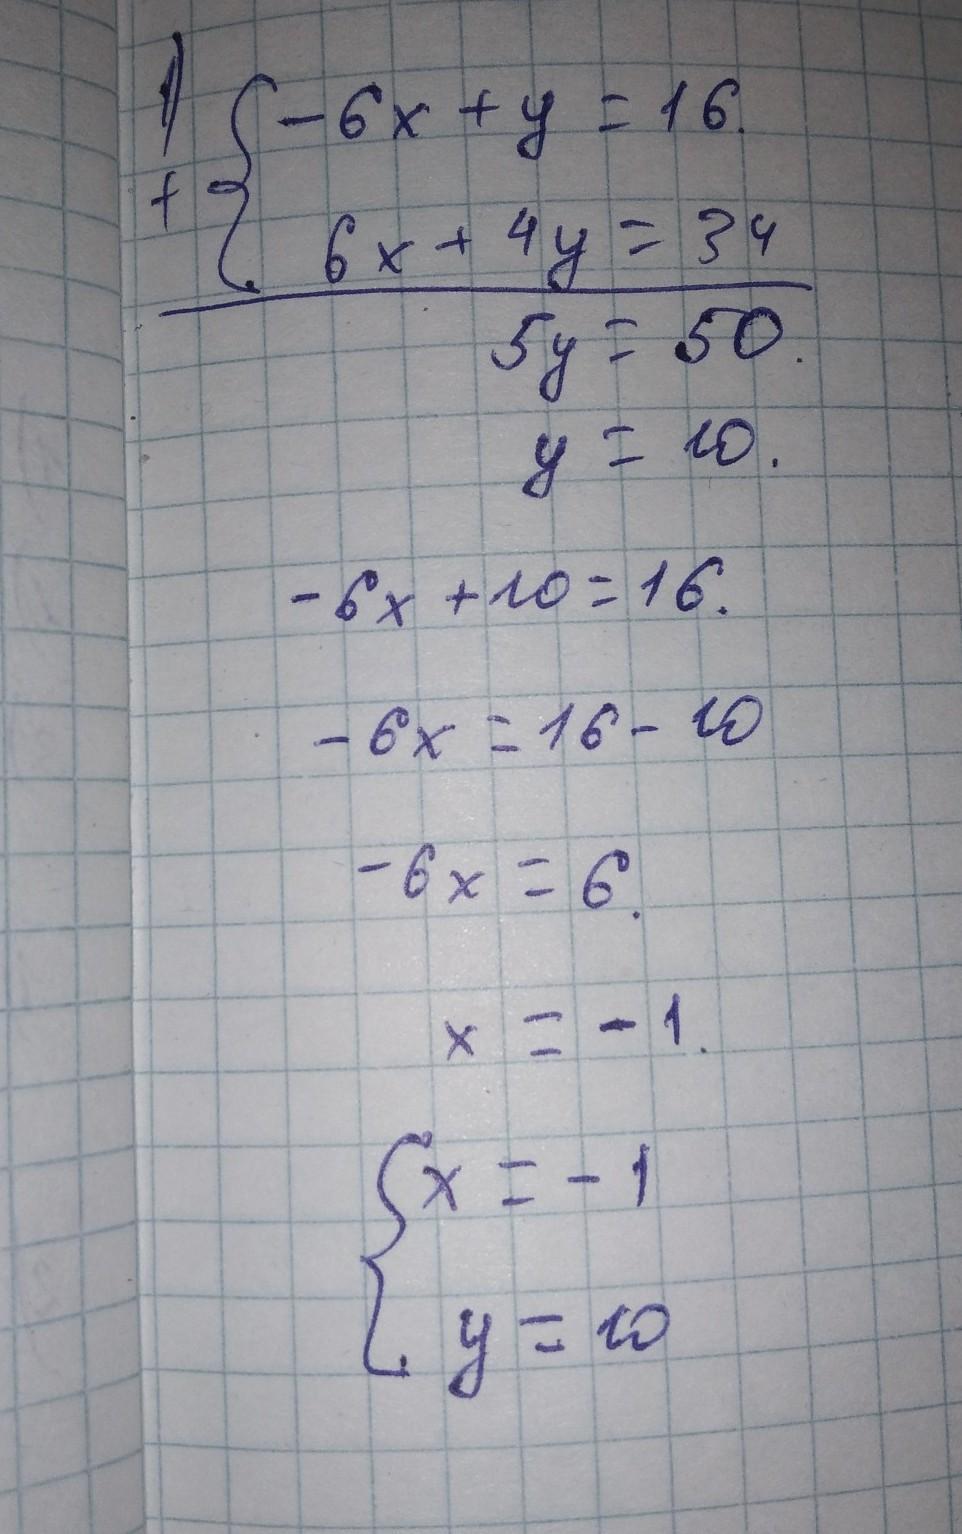 1) -6x + y = 16.
+ 6x + 4y = 34
5y = 50.
y = 10.
-6x + 10 = 16.
-6x = 16 - 10
-6x = 6.
x = -1.
x = -1
y = 10